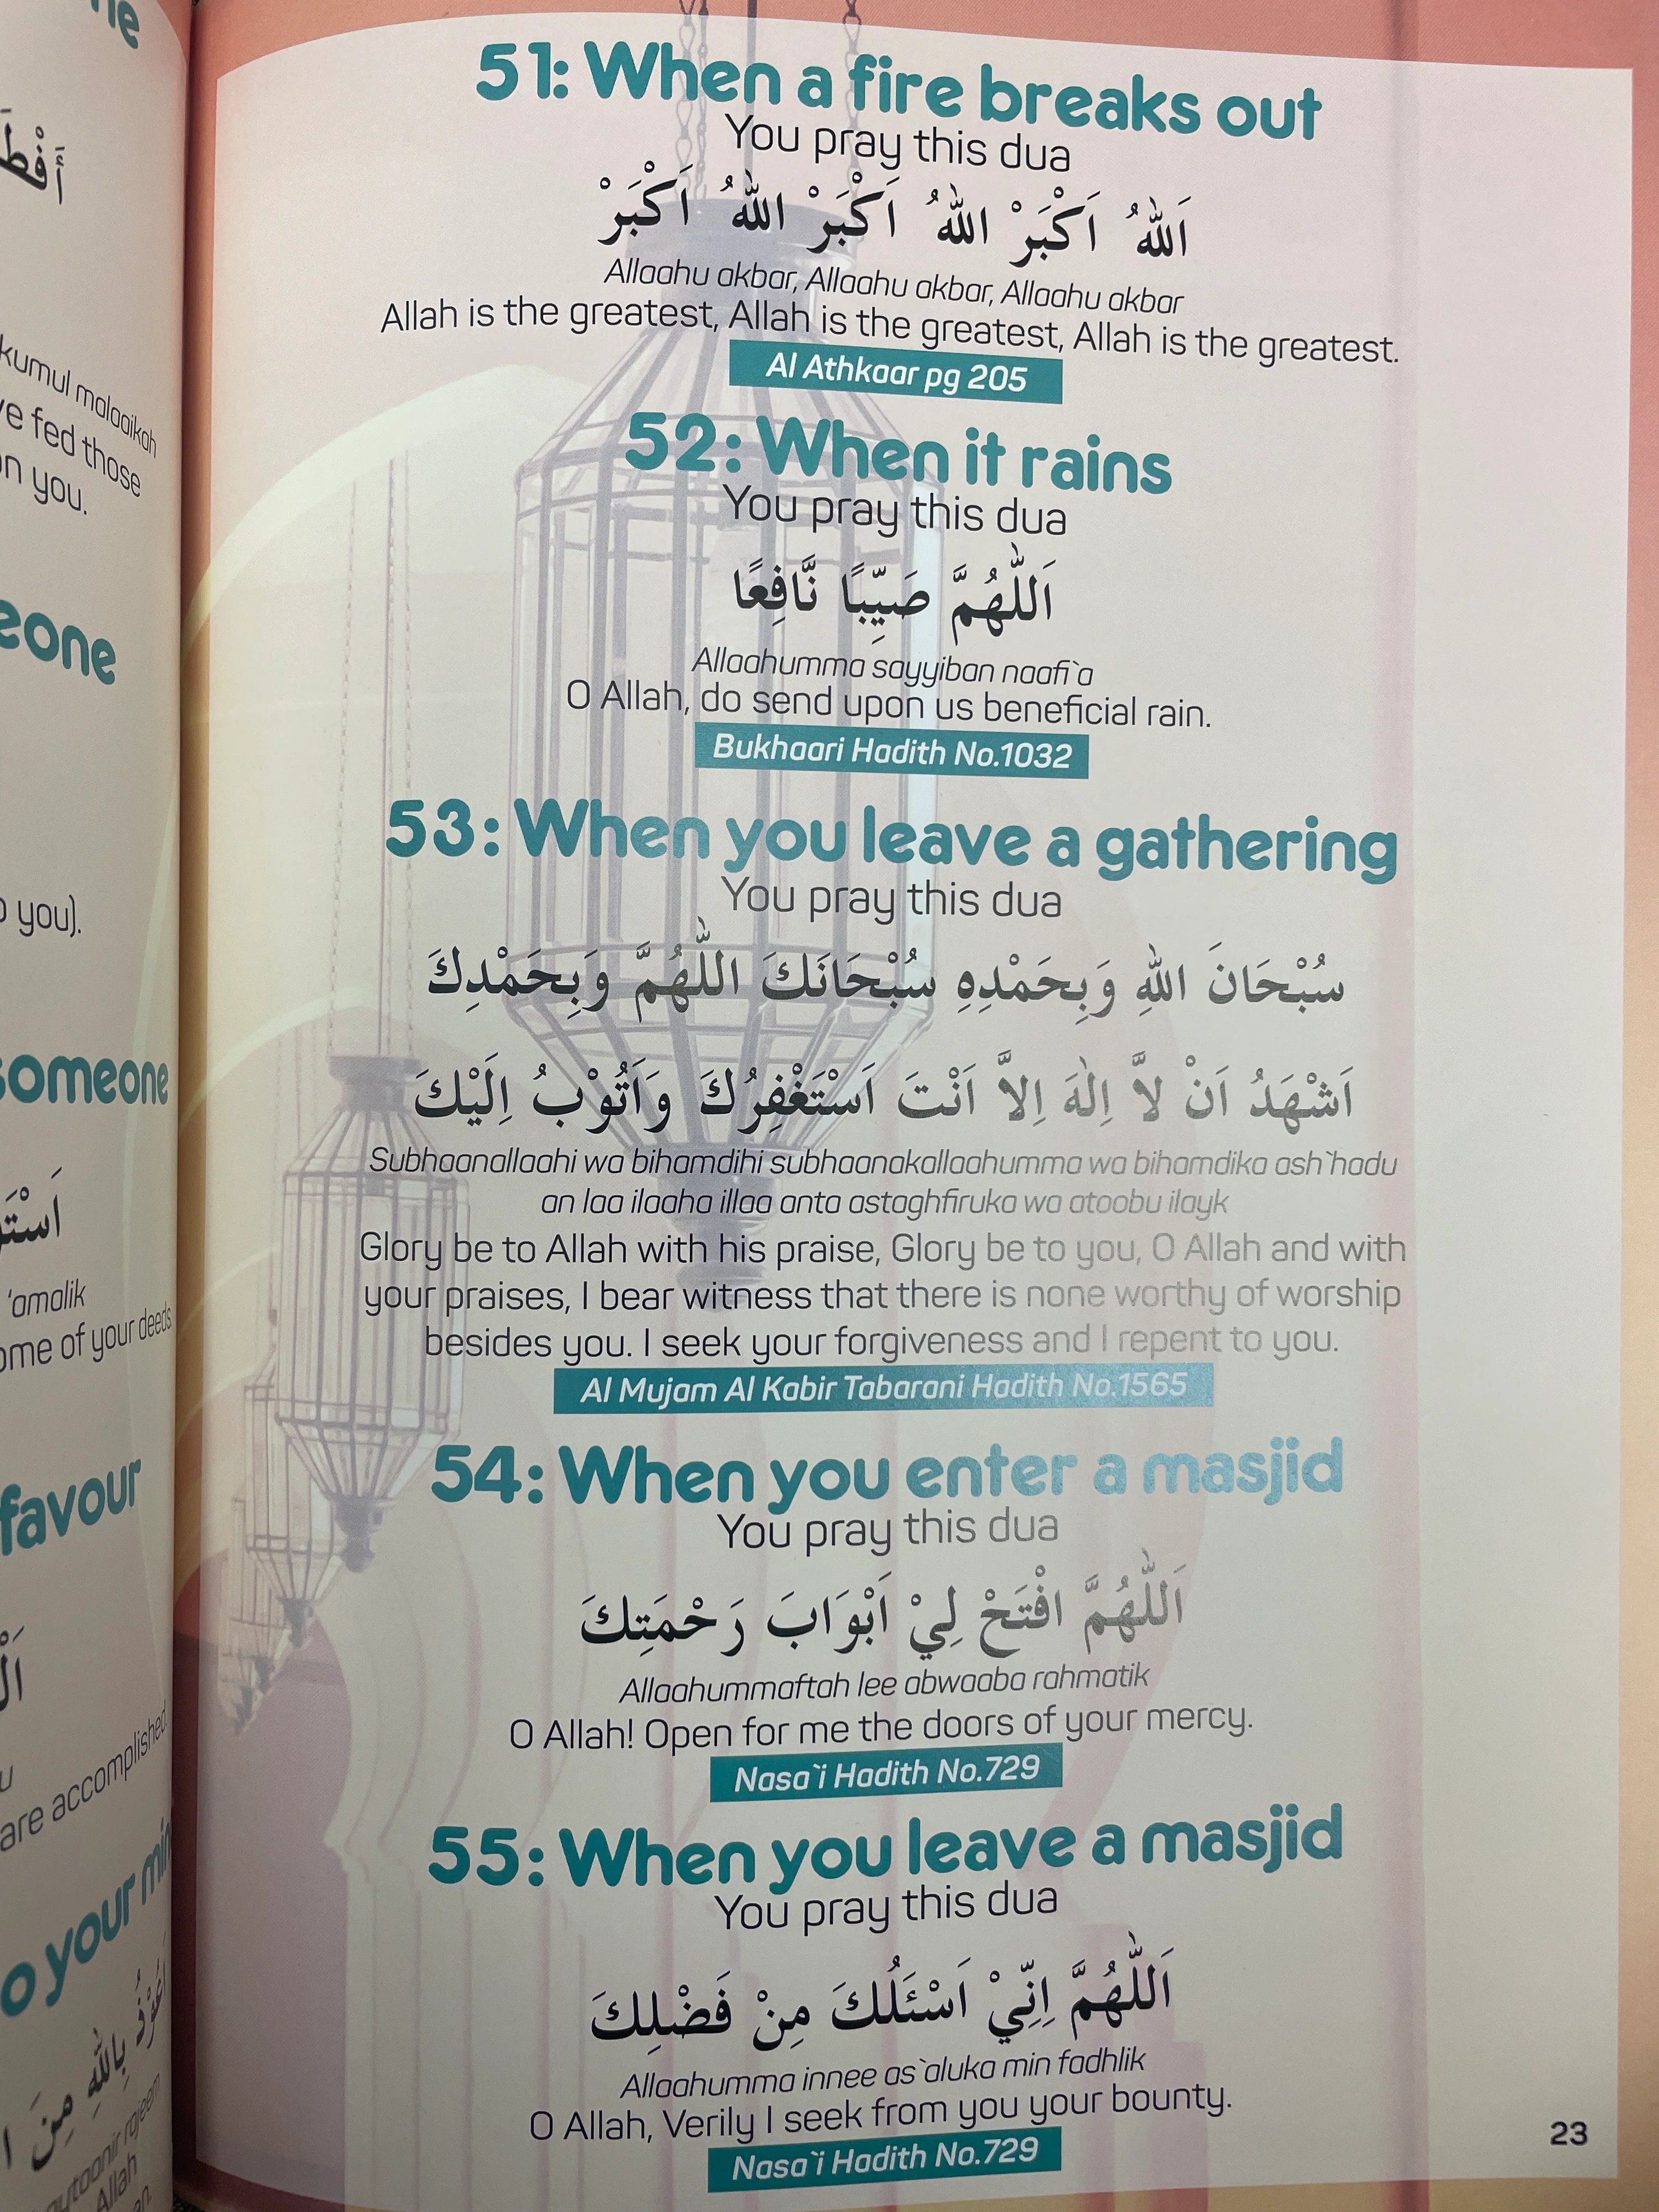 51: When a fire breaks out
You pray this dua
اَللهُ اَكْبَرْ اَللهُ اَكْبَرْ اَللهُ اَكْبَرْ
Allaahu akbar, Allaahu akbar, Allaahu akbar
Allah is the greatest, Allah is the greatest, Allah is the greatest.
Al Athkaar pg 205
52: When it rains
You pray this dua
اَللّٰهُمَّ صَيِّبًا نَّافِعًا
Allaahumma sayyiban naafi`a
O Allah, do send upon us beneficial rain.
Bukhaari Hadith No.1032
53: When you leave a gathering
You pray this dua
سُبْحَانَ اللهِ وَبِحَمْدِهِ سُبْحَانَكَ اللّٰهُمَّ وَبِحَمْدِكَ
اَشْهَدُ اَنْ لاَّ اِلٰهَ اِلاَّ اَنْتَ اَسْتَغْفِرُكَ وَاَتُوْبُ اِلَيْكَ
Subhaanallaahi wa bihamdihi subhaanakallaahumma wa bihamdika ash`hadu
an laa ilaaha illaa anta astaghfiruka wa atoobu ilayk
Glory be to Allah with his praise, Glory be to you, O Allah and with
your praises, I bear witness that there is none worthy of worship
besides you. I seek your forgiveness and I repent to you.
Al Mujam Al Kabir Tabarani Hadith No.1565
54: When you enter a masjid
You pray this dua
اَللّٰهُمَّ افْتَحْ لِيْ اَبْوَابَ رَحْمَتِكَ
Allaahummaftah lee abwaaba rahmatik
O Allah! Open for me the doors of your mercy.
Nasa`i Hadith No.729
55: When you leave a masjid
You pray this dua
اَللّٰهُمَّ اِنِّيْ اَسْئَلُكَ مِنْ فَضْلِكَ
Allaahumma innee as`aluka min fadhlik
O Allah, Verily I seek from you your bounty.
Nasa`i Hadith No.729
23
kumul malaaikah
fed those
on you.
you).
someone
'amalik
of your deeds
favour
are accomplished
your
بِاللهِ مِنَ
Allah